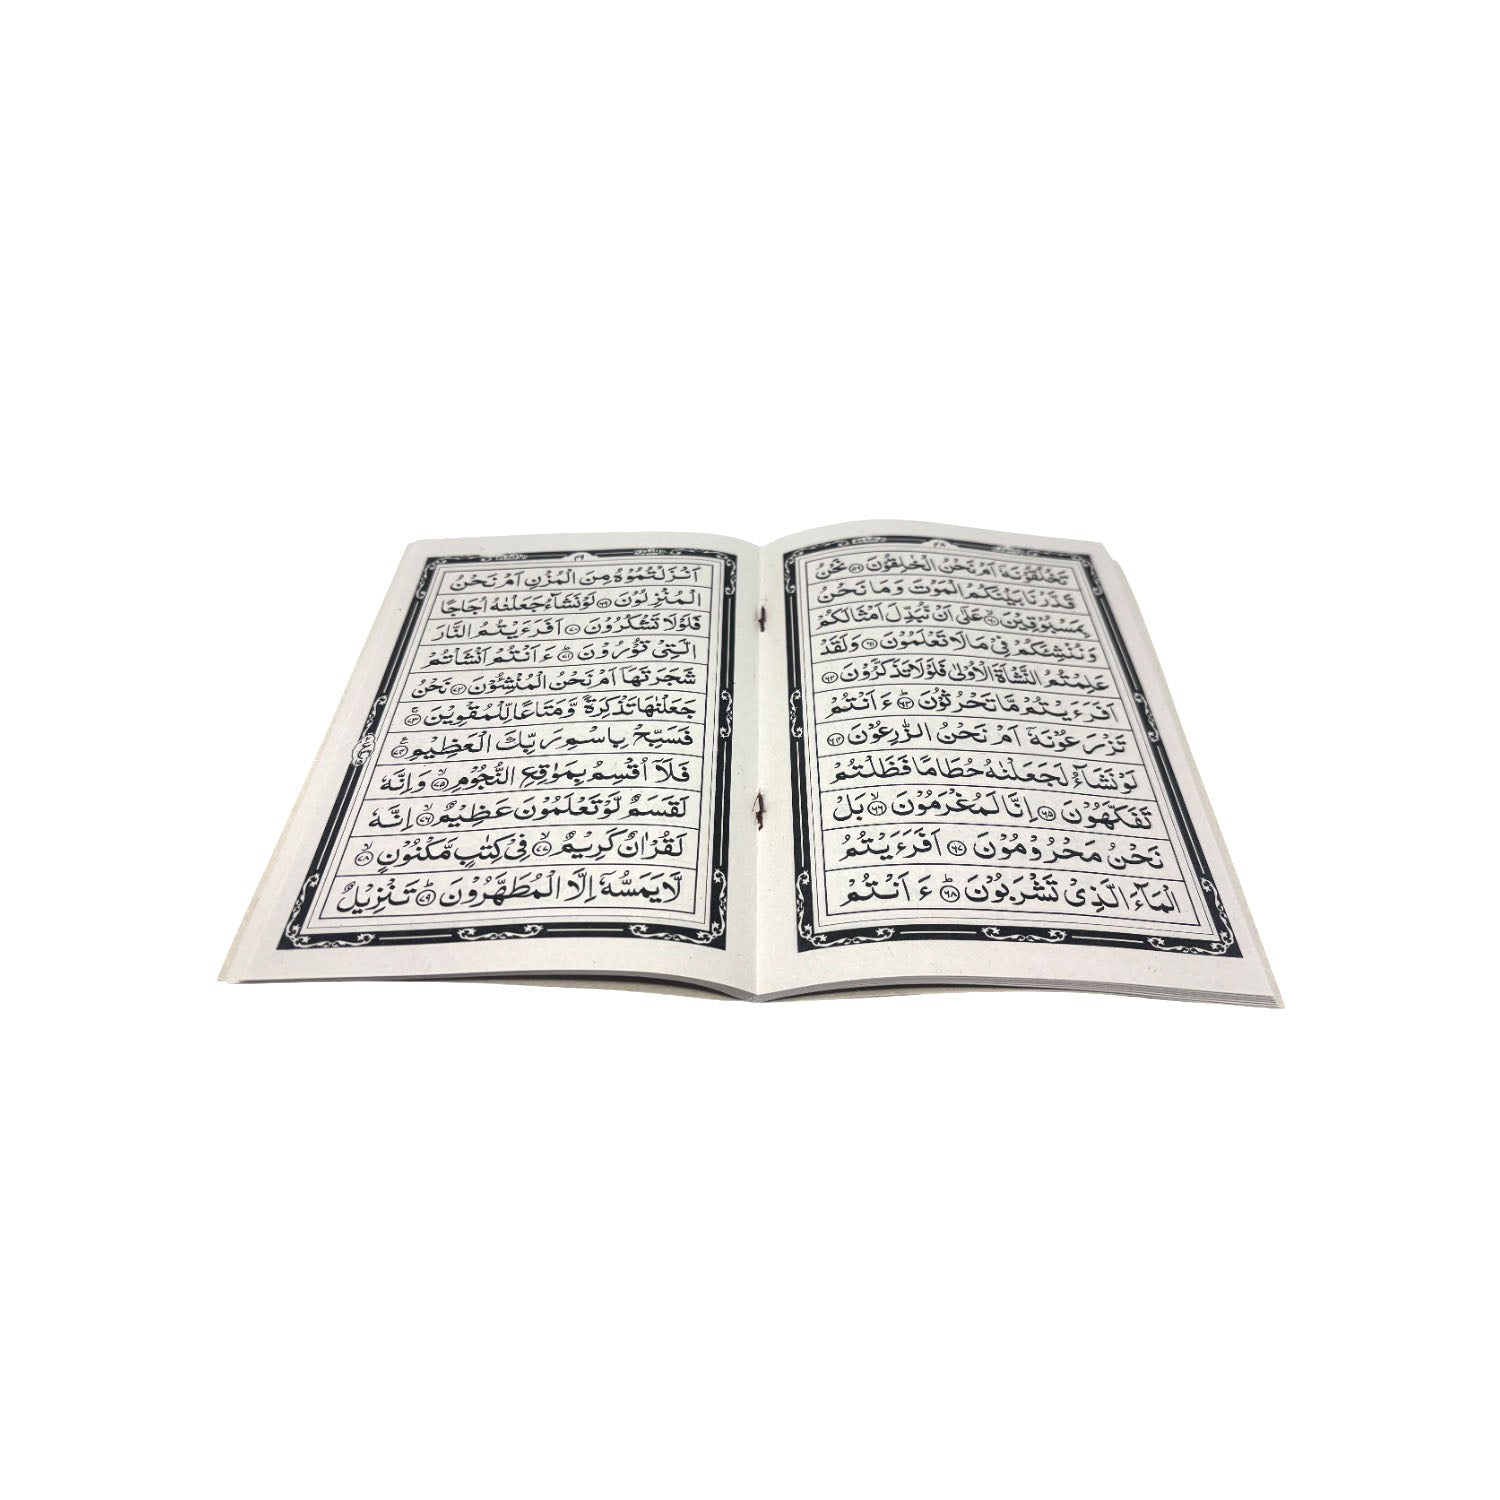 ٢٨
تَخْلُقُوْنَهٗۤ اَمْ نَحْنُ الْخٰلِقُوْنَ ﴿۵۹﴾ نَحْنُ
قَدَّرْنَا بَيْنَكُمُ الْمَوْتَ وَمَا نَحْنُ
بِمَسْبُوْقِيْنَ ﴿۶۰﴾ۙ عَلٰۤى اَنْ نُّبَدِّلَ اَمْثَالَكُمْ
وَنُنْشِئَكُمْ فِيْ مَا لَا تَعْلَمُوْنَ ﴿۶۱﴾ وَلَقَدْ
عَلِمْتُمُ النَّشْاَةَ الْاُوْلٰى فَلَوْلَا تَذَكَّرُوْنَ ﴿۶۲﴾
اَفَرَءَيْتُمْ مَّا تَحْرُثُوْنَ ﴿۶۳﴾ؕ ءَ اَنْتُمْ
تَزْرَعُوْنَهٗۤ اَمْ نَحْنُ الزّٰرِعُوْنَ ﴿۶۴﴾
لَوْ نَشَآءُ لَجَعَلْنٰهُ حُطَامًا فَظَلْتُمْ
تَفَكَّهُوْنَ ﴿۶۵﴾ اِنَّا لَمُغْرَمُوْنَ ﴿۶۶﴾ۙ بَلْ
نَحْنُ مَحْرُوْمُوْنَ ﴿۶۷﴾ اَفَرَءَيْتُمُ
الْمَآءَ الَّذِيْ تَشْرَبُوْنَ ﴿۶۸﴾ؕ ءَ اَنْتُمْ
٢٩
اَنْزَلْتُمُوْهُ مِنَ الْمُزْنِ اَمْ نَحْنُ
الْمُنْزِلُوْنَ ﴿۶۹﴾ لَوْ نَشَآءُ جَعَلْنٰهُ اُجَاجًا
فَلَوْلَا تَشْكُرُوْنَ ﴿۷۰﴾ اَفَرَءَيْتُمُ النَّارَ
الَّتِيْ تُوْرُوْنَ ﴿۷۱﴾ؕ ءَ اَنْتُمْ اَنْشَاْتُمْ
شَجَرَتَهَاۤ اَمْ نَحْنُ الْمُنْشِـُٔوْنَ ﴿۷۲﴾ نَحْنُ
جَعَلْنٰهَا تَذْكِرَةً وَّمَتَاعًا لِّلْمُقْوِيْنَ ﴿۷۳﴾ۚ
فَسَبِّحْ بِاسْمِ رَبِّكَ الْعَظِيْمِ ﴿۷۴﴾ؑ
فَلَاۤ اُقْسِمُ بِمَوٰقِعِ النُّجُوْمِ ﴿۷۵﴾ۙ وَاِنَّهٗ
لَقَسَمٌ لَّوْ تَعْلَمُوْنَ عَظِيْمٌ ﴿۷۶﴾ۙ اِنَّهٗ
لَقُرْاٰنٌ كَرِيْمٌ ﴿۷۷﴾ۙ فِيْ كِتٰبٍ مَّكْنُوْنٍ ﴿۷۸﴾ۙ
لَّا يَمَسُّهٗۤ اِلَّا الْمُطَهَّرُوْنَ ﴿۷۹﴾ؕ تَنْزِيْلٌ